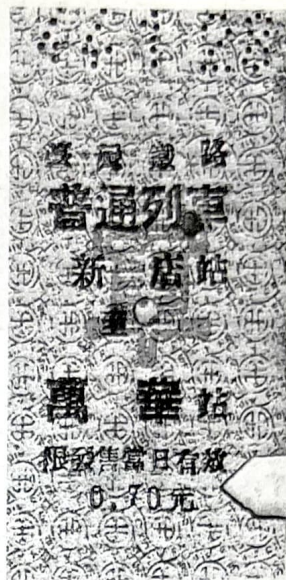 臺灣鐵路
普通列車
新店站
至
萬華站
限發售當日有效
0.70元